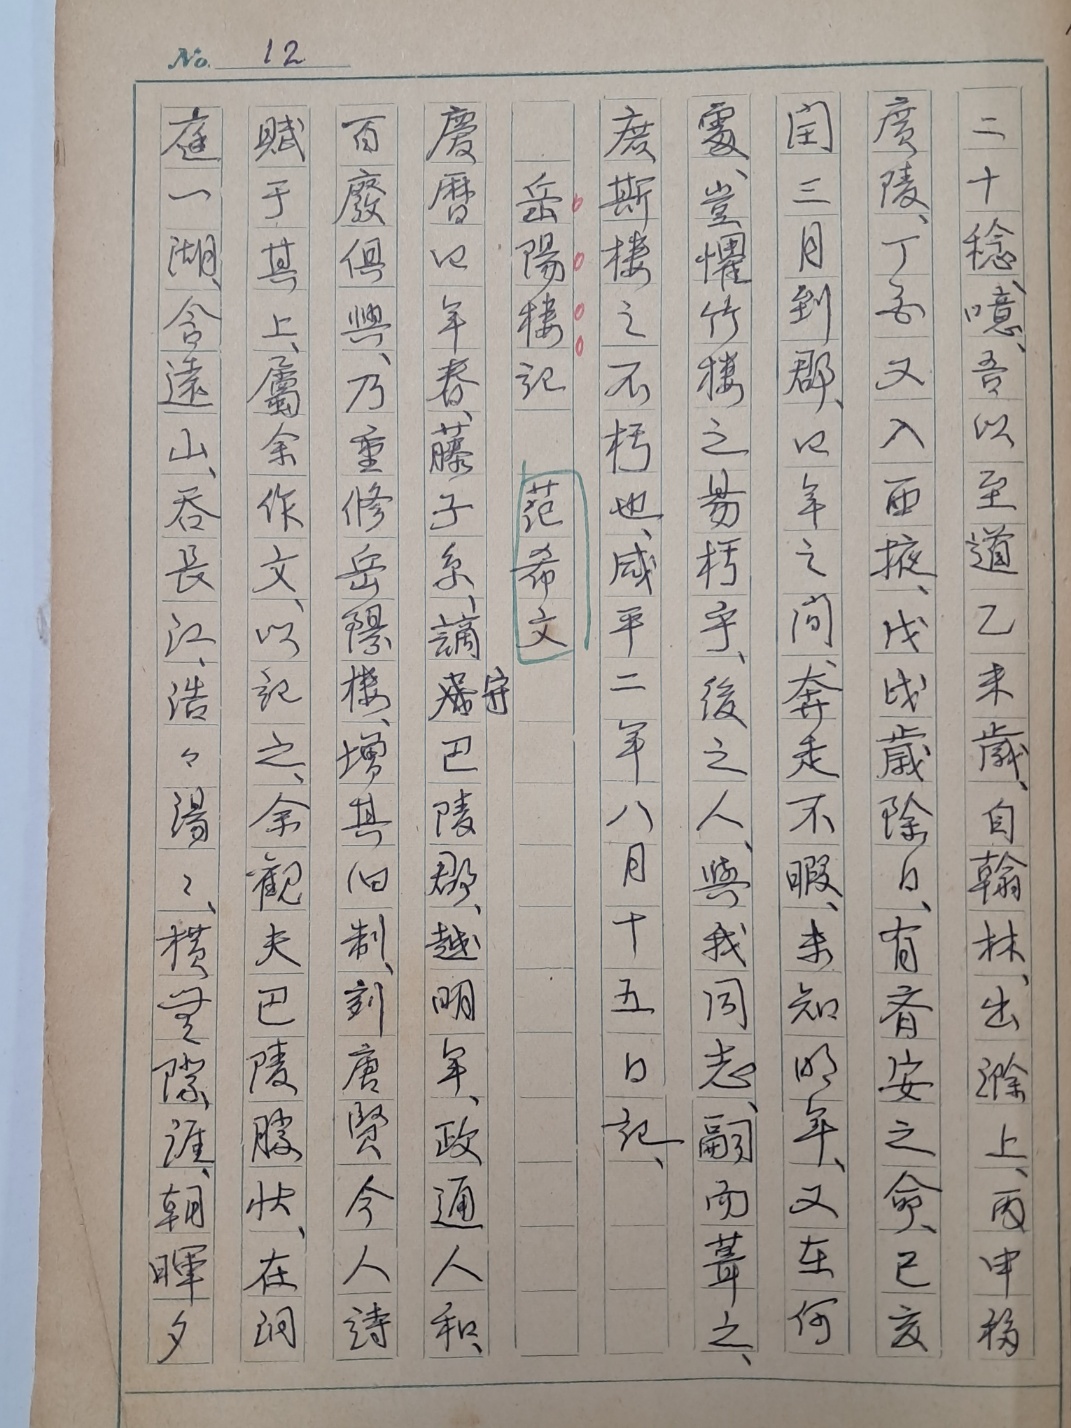 No. 12
二十稔、噫、吾以至道乙未歲、自翰林、出滁上、丙申移
廣陵、丁酉又入西掖、戊戌歲除日、有齊安之命、己亥
閏三月到郡、四年之间奔走不暇、未知明年、又在何
處、豈懼竹樓之易朽乎、後之人、與我同志、嗣而葺之、
庶斯樓之不朽也、咸平二年八月十五日記、
岳陽樓記 范希文
慶曆四年春、藤子京、謫守巴陵郡、越明年、政通人和、
百廢俱興、乃重修岳陽樓、增其旧制、刻唐賢今人詩
賦于其上、屬余作文、以記之、余觀夫巴陵勝狀、在洞
庭一湖、含遠山、吞長江、浩々湯々、橫無際涯、朝暉夕